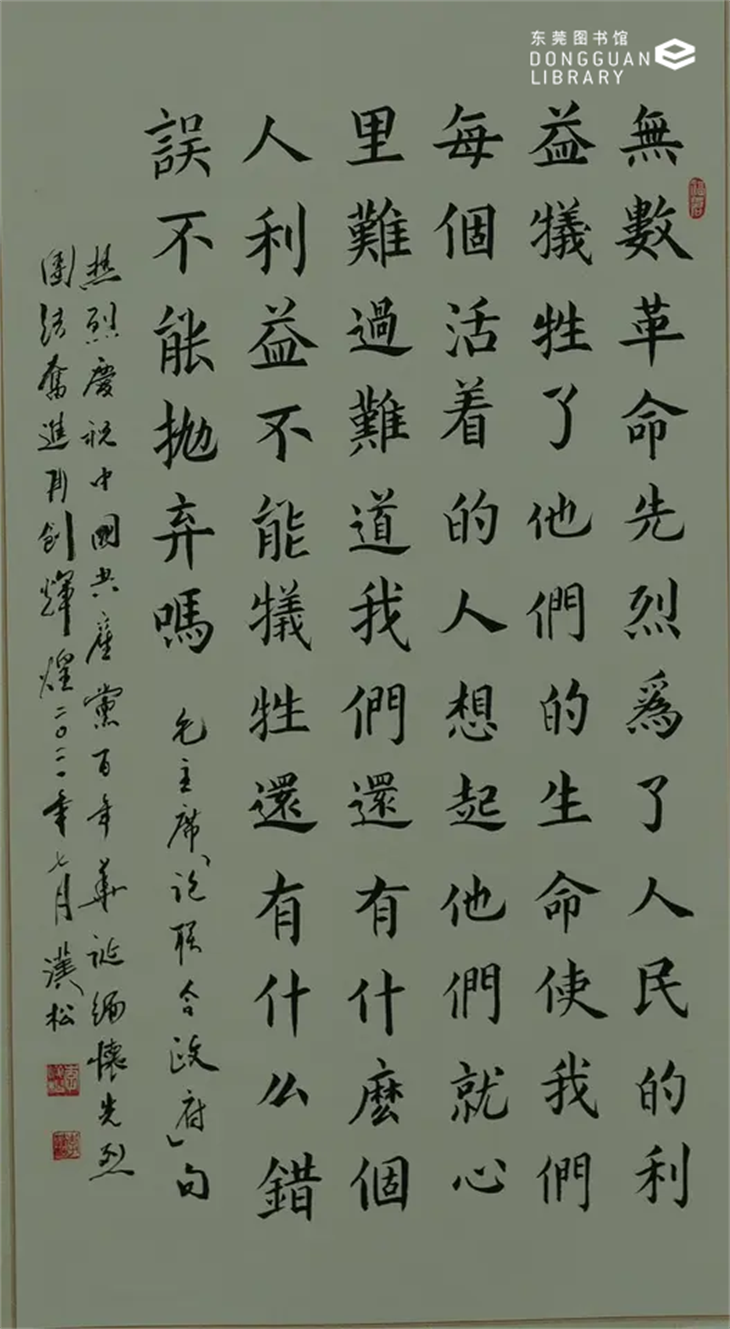 东莞图书馆
DONGGUAN
LIBRARY
無數革命先烈爲了人民的利
益犧牲了他們的生命使我們
每個活着的人想起他們就心
里難過難道我們還有什麼個
人利益不能犧牲還有什么錯
誤不能拋弃嗎
毛主席「论联合政府」句
热烈慶祝中國共產黨百年華诞缅懷先烈
團结奮進再创輝煌二〇二一年七月漢松